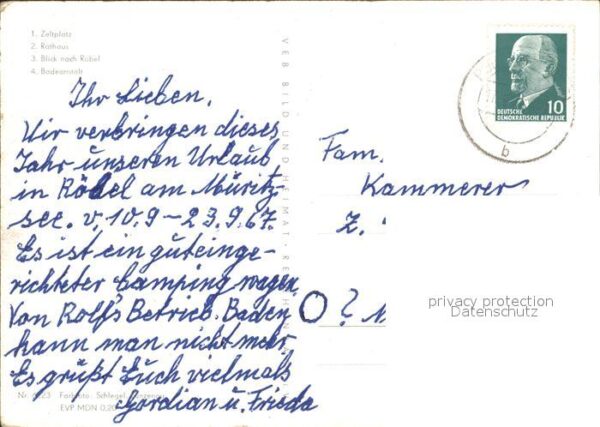 1. Zeltplatz
2. Rathaus
3. Blick nach Röbel
4. Badeanstalt
Ihr Lieben,
Wir verbringen dieses
Jahr unseren Urlaub
in Röbel am Müritz
see. v. 10.9 – 23.9.67.
Es ist ein guteinge-
richteter Campingwagen
Von Rolf's Betrieb. Baden
kann man nicht mehr
Es grüßt Euch vielmals
Gordian u. Frieda
VEB BILD UND HEIMAT · REICHENBACH
Foto: Schlegel
EVP MDN 0,20
DEUTSCHE
DEMOKRATISCHE REPUBLIK
10
b
Fam.
Kammerer
Z.
O ?
privacy protection
Datenschutz